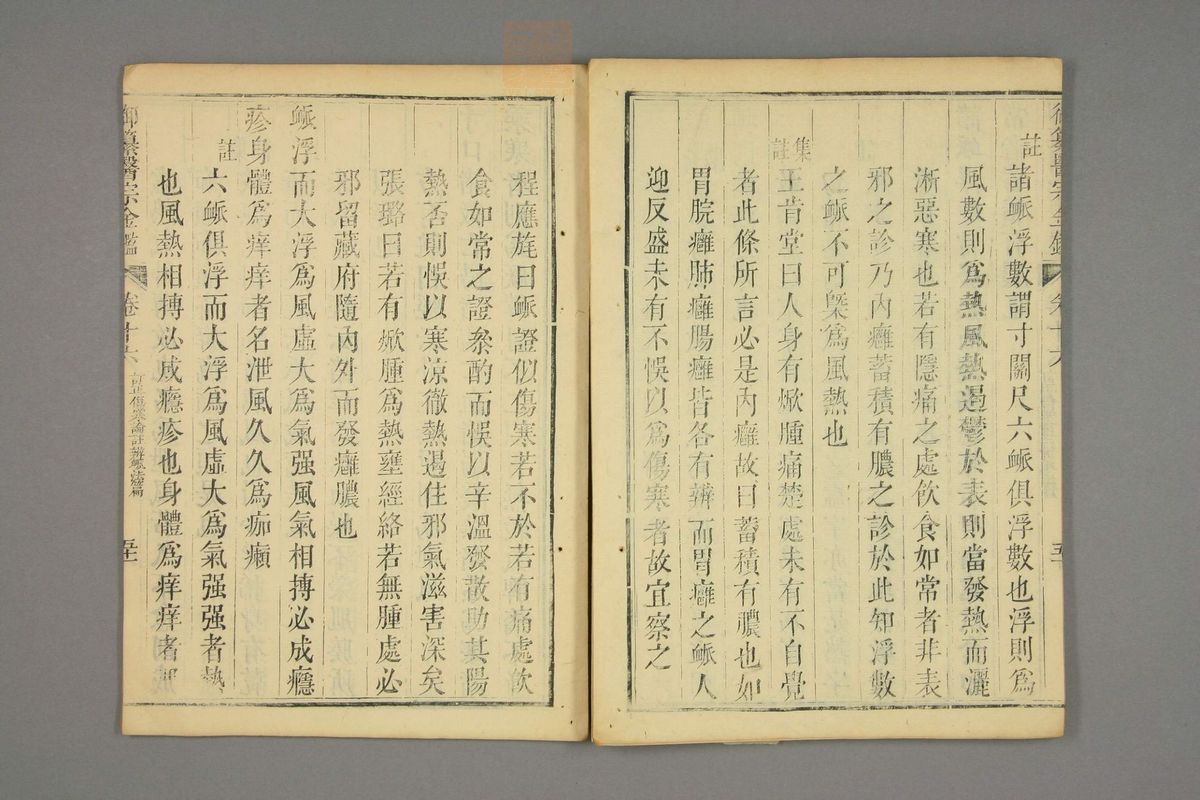 註
諸脈浮數謂寸關尺六脈俱浮數也浮則爲
風數則爲熱風熱遏鬱於表則當發熱而灑
淅惡寒也若有隱痛之處飲食如常者非表
邪之診乃內癰蓄積有膿之診於此知浮數
之脈不可槩爲風熱也
集註
王肯堂曰人身有焮腫痛楚處未有不自覺
者此條所言必是內癰故曰蓄積有膿也如
胃脘癰肺癰腸癰皆各有辨而胃癰之脈人
迎反盛未有不悞以爲傷寒者故宜察之
程應旄曰脈證似傷寒若不於若有痛處飲
食如常之證叅酌而悞以辛溫發散助其陽
熱否則悞以寒涼徹熱遏住邪氣滋害深矣
張璐曰若有焮腫爲熱壅經絡若無腫處必
邪留藏府隨內外而發癰膿也
脈浮而大浮爲風虛大爲氣强風氣相搏必成癮
疹身體爲痒痒者名泄風久久爲痂癩
註
六脈俱浮而大浮爲風虛大爲氣强强者熱
也風熱相搏必成癮疹也身體爲痒痒者
御纂醫宗金鑑 卷十六 訂正傷寒論註辨脈法篇